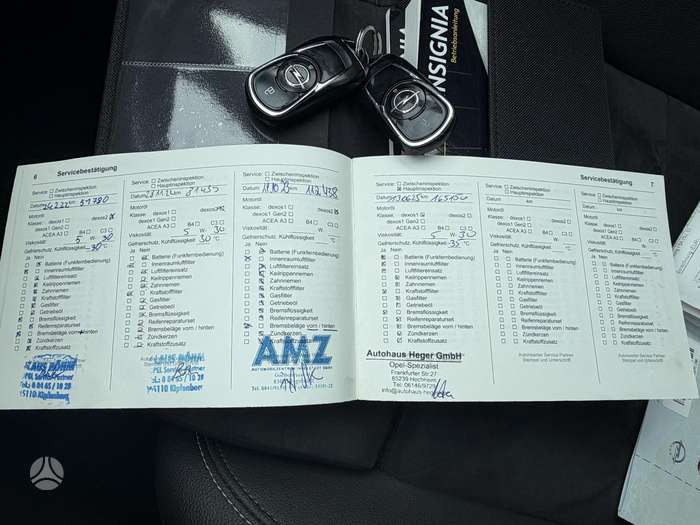 INSIGNIA
Betriebsanleitung
6
Servicebestätigung
Service: Zwischeninspektion
Hauptinspektion
Datum 24.2.22 km 51780
Motoröl
Klasse: dexos1 dexos2
dexos1 Gen2
ACEA A3 B4 C3
Viskosität: 5 W 30
Gefrierschutz, Kühlflüssigkeit 30 °C
Ja Nein
Batterie (Funkfernbedienung)
Innenraumluftfilter
Luftfiltereinsatz
Keilrippenriemen
Zahnriemen
Kraftstofffilter
Gasfilter
Getriebeöl
Bremsflüssigkeit
Reifenreparaturset
Bremsbeläge vorn / hinten
Zündkerzen
Kraftstoffzusatz
KLAUS BÖHM
OPEL Service Partner
85110 Kipfenberg
Service: Zwischeninspektion
Hauptinspektion
Datum km 81435
Motoröl
Klasse: dexos1 dexos2
dexos1 Gen2
ACEA A3 B4 C3
Viskosität: 5 W 30
Gefrierschutz, Kühlflüssigkeit 30 °C
Ja Nein
Batterie (Funkfernbedienung)
Innenraumluftfilter
Luftfiltereinsatz
Keilrippenriemen
Zahnriemen
Kraftstofffilter
Gasfilter
Getriebeöl
Bremsflüssigkeit
Reifenreparaturset
Bremsbeläge vorn / hinten
Zündkerzen
Kraftstoffzusatz
KLAUS BÖHM
OPEL Service Partner
85110 Kipfenberg
Service: Zwischeninspektion
Hauptinspektion
Datum km 112438
Motoröl
Klasse: dexos1 dexos2
dexos1 Gen2
ACEA A3 B4 C3
Viskosität: W
Gefrierschutz, Kühlflüssigkeit °C
Ja Nein
Batterie (Funkfernbedienung)
Innenraumluftfilter
Luftfiltereinsatz
Keilrippenriemen
Zahnriemen
Kraftstofffilter
Gasfilter
Getriebeöl
Bremsflüssigkeit
Reifenreparaturset
Bremsbeläge vorn / hinten
Zündkerzen
Kraftstoffzusatz
AMZ
Servicebestätigung
7
Service: Zwischeninspektion
Hauptinspektion
Datum 130625 km 165150
Motoröl
Klasse: dexos1 dexos2
dexos1 Gen2
ACEA A3 B4 C3
Viskosität: 5 W 30
Gefrierschutz, Kühlflüssigkeit -35 °C
Ja Nein
Batterie (Funkfernbedienung)
Innenraumluftfilter
Luftfiltereinsatz
Keilrippenriemen
Zahnriemen
Kraftstofffilter
Gasfilter
Getriebeöl
Bremsflüssigkeit
Reifenreparaturset
Bremsbeläge vorn / hinten
Zündkerzen
Kraftstoffzusatz
Autohaus Heger GmbH
Opel-Spezialist
Frankfurter Str.27
65239 Hochheim
Tel: 06146/
info@autohaus
Service: Zwischeninspektion
Hauptinspektion
Datum km
Motoröl
Klasse: dexos1 dexos2
dexos1 Gen2
ACEA A3 B4 C3
Viskosität: W
Gefrierschutz, Kühlflüssigkeit °C
Ja Nein
Batterie (Funkfernbedienung)
Innenraumluftfilter
Luftfiltereinsatz
Keilrippenriemen
Zahnriemen
Kraftstofffilter
Gasfilter
Getriebeöl
Bremsflüssigkeit
Reifenreparaturset
Bremsbeläge vorn / hinten
Zündkerzen
Kraftstoffzusatz
Autorisierter Service Partner
Stempel und Unterschrift
Service: Zwischeninspektion
Hauptinspektion
Datum km
Motoröl
Klasse: dexos1 dexos2
dexos1 Gen2
ACEA A3 B4 C3
Viskosität: W
Gefrierschutz, Kühlflüssigkeit °C
Ja Nein
Batterie (Funkfernbedienung)
Innenraumluftfilter
Luftfiltereinsatz
Keilrippenriemen
Zahnriemen
Kraftstofffilter
Gasfilter
Getriebeöl
Bremsflüssigkeit
Reifenreparaturset
Bremsbeläge vorn / hinten
Zündkerzen
Kraftstoffzusatz
Autorisierter Service Partner
Stempel und Unterschrift